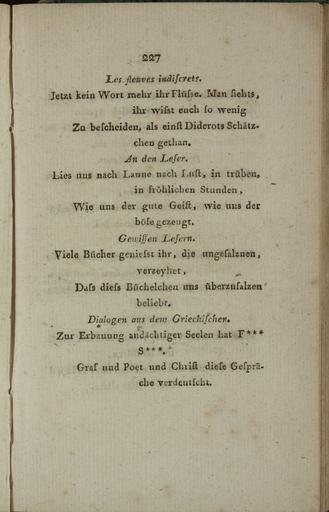 227
Les fleuves indiſcrets.
Jetzt kein Wort mehr ihr Flüſſe. Man ſiehts,
ihr wiſst euch ſo wenig
Zu beſcheiden, als einſt Diderots Schätz-
chen gethan.
An den Leſer.
Lies uns nach Laune nach Luſt, in trüben,
in fröhlichen Stunden,
Wie uns der gute Geiſt, wie uns der
böſe gezeugt.
Gewiſſen Leſern.
Viele Bücher genieſst ihr, die ungeſalznen,
verzeyhet,
Daſs dieſs Büchelchen uns überzuſalzen
beliebt.
Dialogen aus dem Griechiſchen.
Zur Erbauung andächtiger Seelen hat F***
S***,
Graf und Poet und Chriſt dieſe Geſprä-
che verdeutſcht.